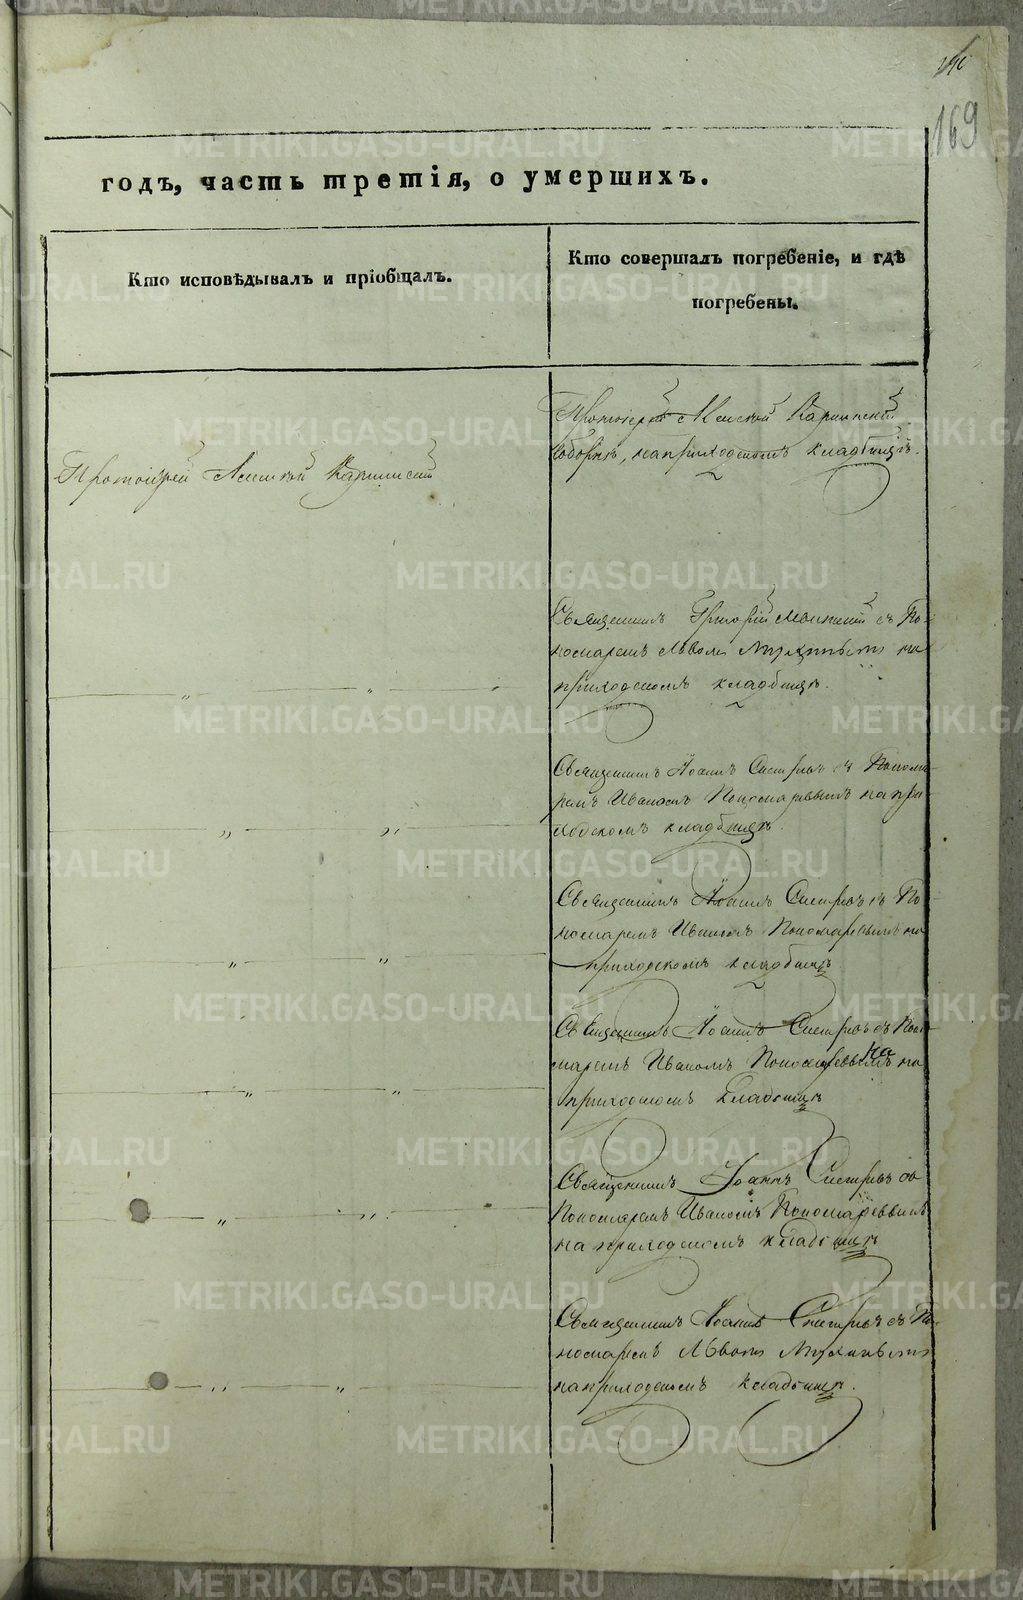 169
годъ, часть третія, о умершихъ.
Кто исповѣдывалъ и пріобщалъ.
Кто совершалъ погребеніе, и гдѣ
погребены.
Протоіерей Карпинскій
соборнѣ, на приходскомъ кладбищѣ.
Протоіерей Карпинскій
Священникъ Григорій съ По-
номаремъ Львомъ на
приходскомъ кладбищѣ.
Священникъ Іоаннъ съ Понома-
ремъ Иваномъ Пономаревымъ на при-
ходскомъ кладбищѣ.
Священникъ Іоаннъ съ По-
номаремъ Иваномъ Пономаревымъ на
приходскомъ кладбищѣ
Священникъ Іоаннъ съ Поно-
маремъ Иваномъ Пономаревымъ на
приходскомъ кладбищѣ
Священникъ Іоаннъ со
Пономаремъ Иваномъ Пономаревымъ
на приходскомъ кладбищѣ
Священникъ Іоаннъ съ По-
номаремъ Львомъ
на приходскомъ кладбищѣ.
METRIKI.GASO-URAL.RU